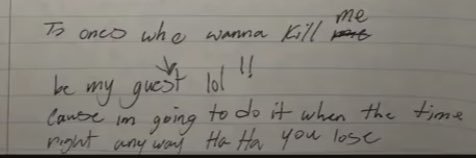 To ones who wanna kill me
be my guest lol !!
Cause im going to do it when the time
right any way Ha Ha you lose